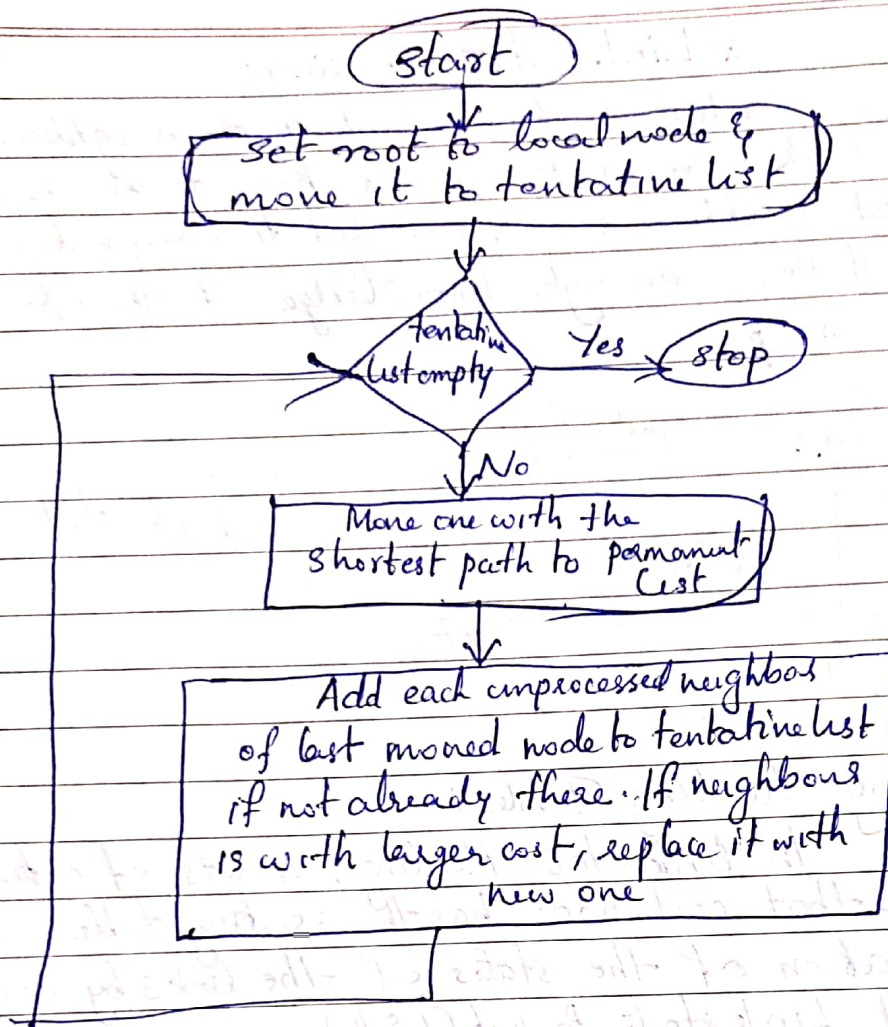 start
Set root to local node &
move it to tentative list
tentative
list empty
Yes
stop
No
Move one with the
shortest path to permanent
list
Add each unprocessed neighbor
of last moved node to tentative list
if not already there. If neighbour
is with larger cost, replace it with
new one